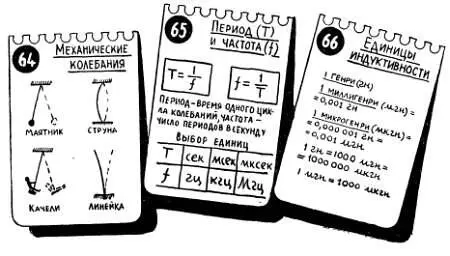 64
МЕХАНИЧЕСКИЕ
КОЛЕБАНИЯ
МАЯТНИК
СТРУНА
КАЧЕЛИ
ЛИНЕЙКА
65
ПЕРИОД (T)
И ЧАСТОТА (f)
T = 1/f
f = 1/T
ПЕРИОД-ВРЕМЯ ОДНОГО ЦИК-
ЛА КОЛЕБАНИЙ, ЧАСТОТА-
ЧИСЛО ПЕРИОДОВ В СЕКУНДУ
ВЫБОР ЕДИНИЦ
T сек мсек мксек
f гц кгц Мгц
66
ЕДИНИЦЫ
ИНДУКТИВНОСТИ
1 ГЕНРИ (ГН)
1 МИЛЛИГЕНРИ (МГН) =
= 0,001 ГН
1 МИКРОГЕНРИ (МКГН) =
= 0,000 001 ГН =
= 0,001 МГН
1 ГН = 1000 МГН =
= 1000 000 МКГН
1 МГН = 1000 МКГН